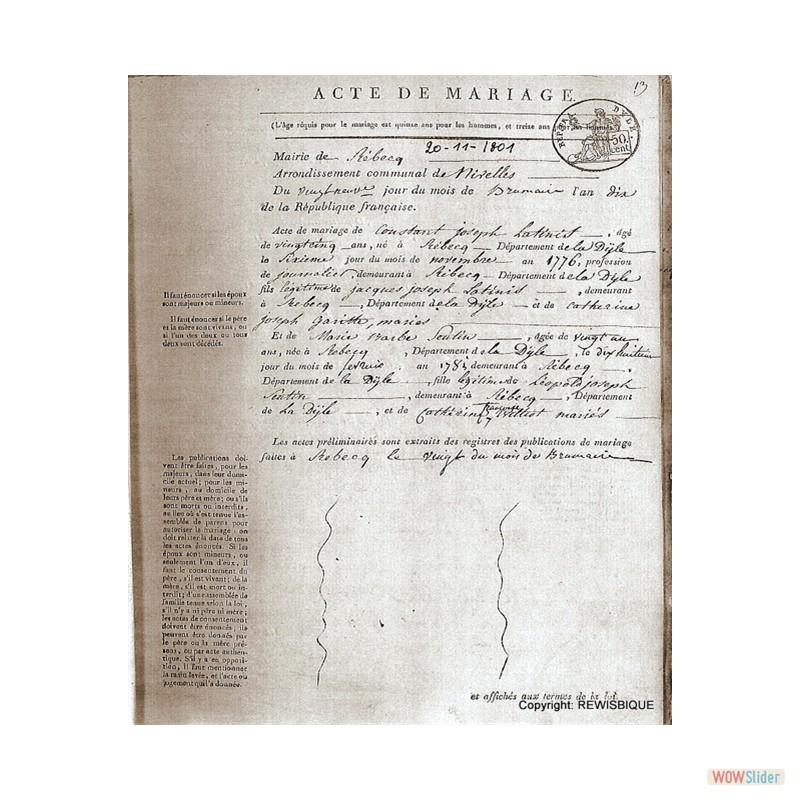 13
ACTE DE MARIAGE.
(L'âge réquis pour le mariage est quinze ans pour les hommes, et treize ans pour les femmes.)
50.
cent
Mairie de Rébecq 20-11-1801
Arrondissement communal de Nivelles
Du vingtneuve jour du mois de Brumair l'an dix
de la République française.
Acte de mariage de Constant joseph Latinist, agé
de vingtcinq ans, né à Rébecq Département de la Dÿle
le Sixieme jour du mois de novembre an 1776, profession
de journalier, demeurant à Rébecq Département de la Dÿle
fils légitime de jacques joseph Latinis, demeurant
à Rebecq, Département de la Dÿle et de catherine
joseph Garitte, mariés
Et de Marie Barbe Sentin, agée de vingt un
ans, née à Rebecq, Département de la Dÿle, le dix huitieme
jour du mois de an 1781 demeurant à Rébecq
Département de la Dÿle, fille légitime de Léopold joseph
Sentin, demeurant à Rébecq, Département
de La Dÿle, et de Catherine mariés
Les actes préliminaires sont extraits des registres des publications de mariage
faites à Rebecq le vingt du mois de Brumair
et affichés aux termes de la loi.
Il faut énoncer si les époux
sont majeurs ou mineurs.
Il faut énoncer si le père
et la mère sont vivans, ou
si l'un des deux ou tous
deux sont décédés.
Les publications doi-
vent être faites, pour les
majeurs, dans leur domi-
cile actuel; pour les mi-
neurs, au domicile de
leurs père et mère; ou s'ils
sont morts ou interdits,
au lieu où s'est tenue l'as-
semblée de parens pour
autoriser le mariage: on
doit relater la date de tous
les actes énoncés. Si les
époux sont mineurs, ou
seulement l'un d'eux, il
faut le consentement du
père, s'il est vivant; de la
mère, s'il est mort ou in-
terdit; d'une assemblée de
famille tenue selon la loi,
s'il n'y a ni père ni mère;
les actes de consentement
doivent être énoncés, ils
peuvent être donnés par
le père ou la mère pré-
sens, ou par acte authen-
tique. S'il y a en opposi-
tion, il faut mentionner
la main levée, et l'acte ou
jugement qui l'a donnée.
Copyright: REWISBIQUE
WOWSlider